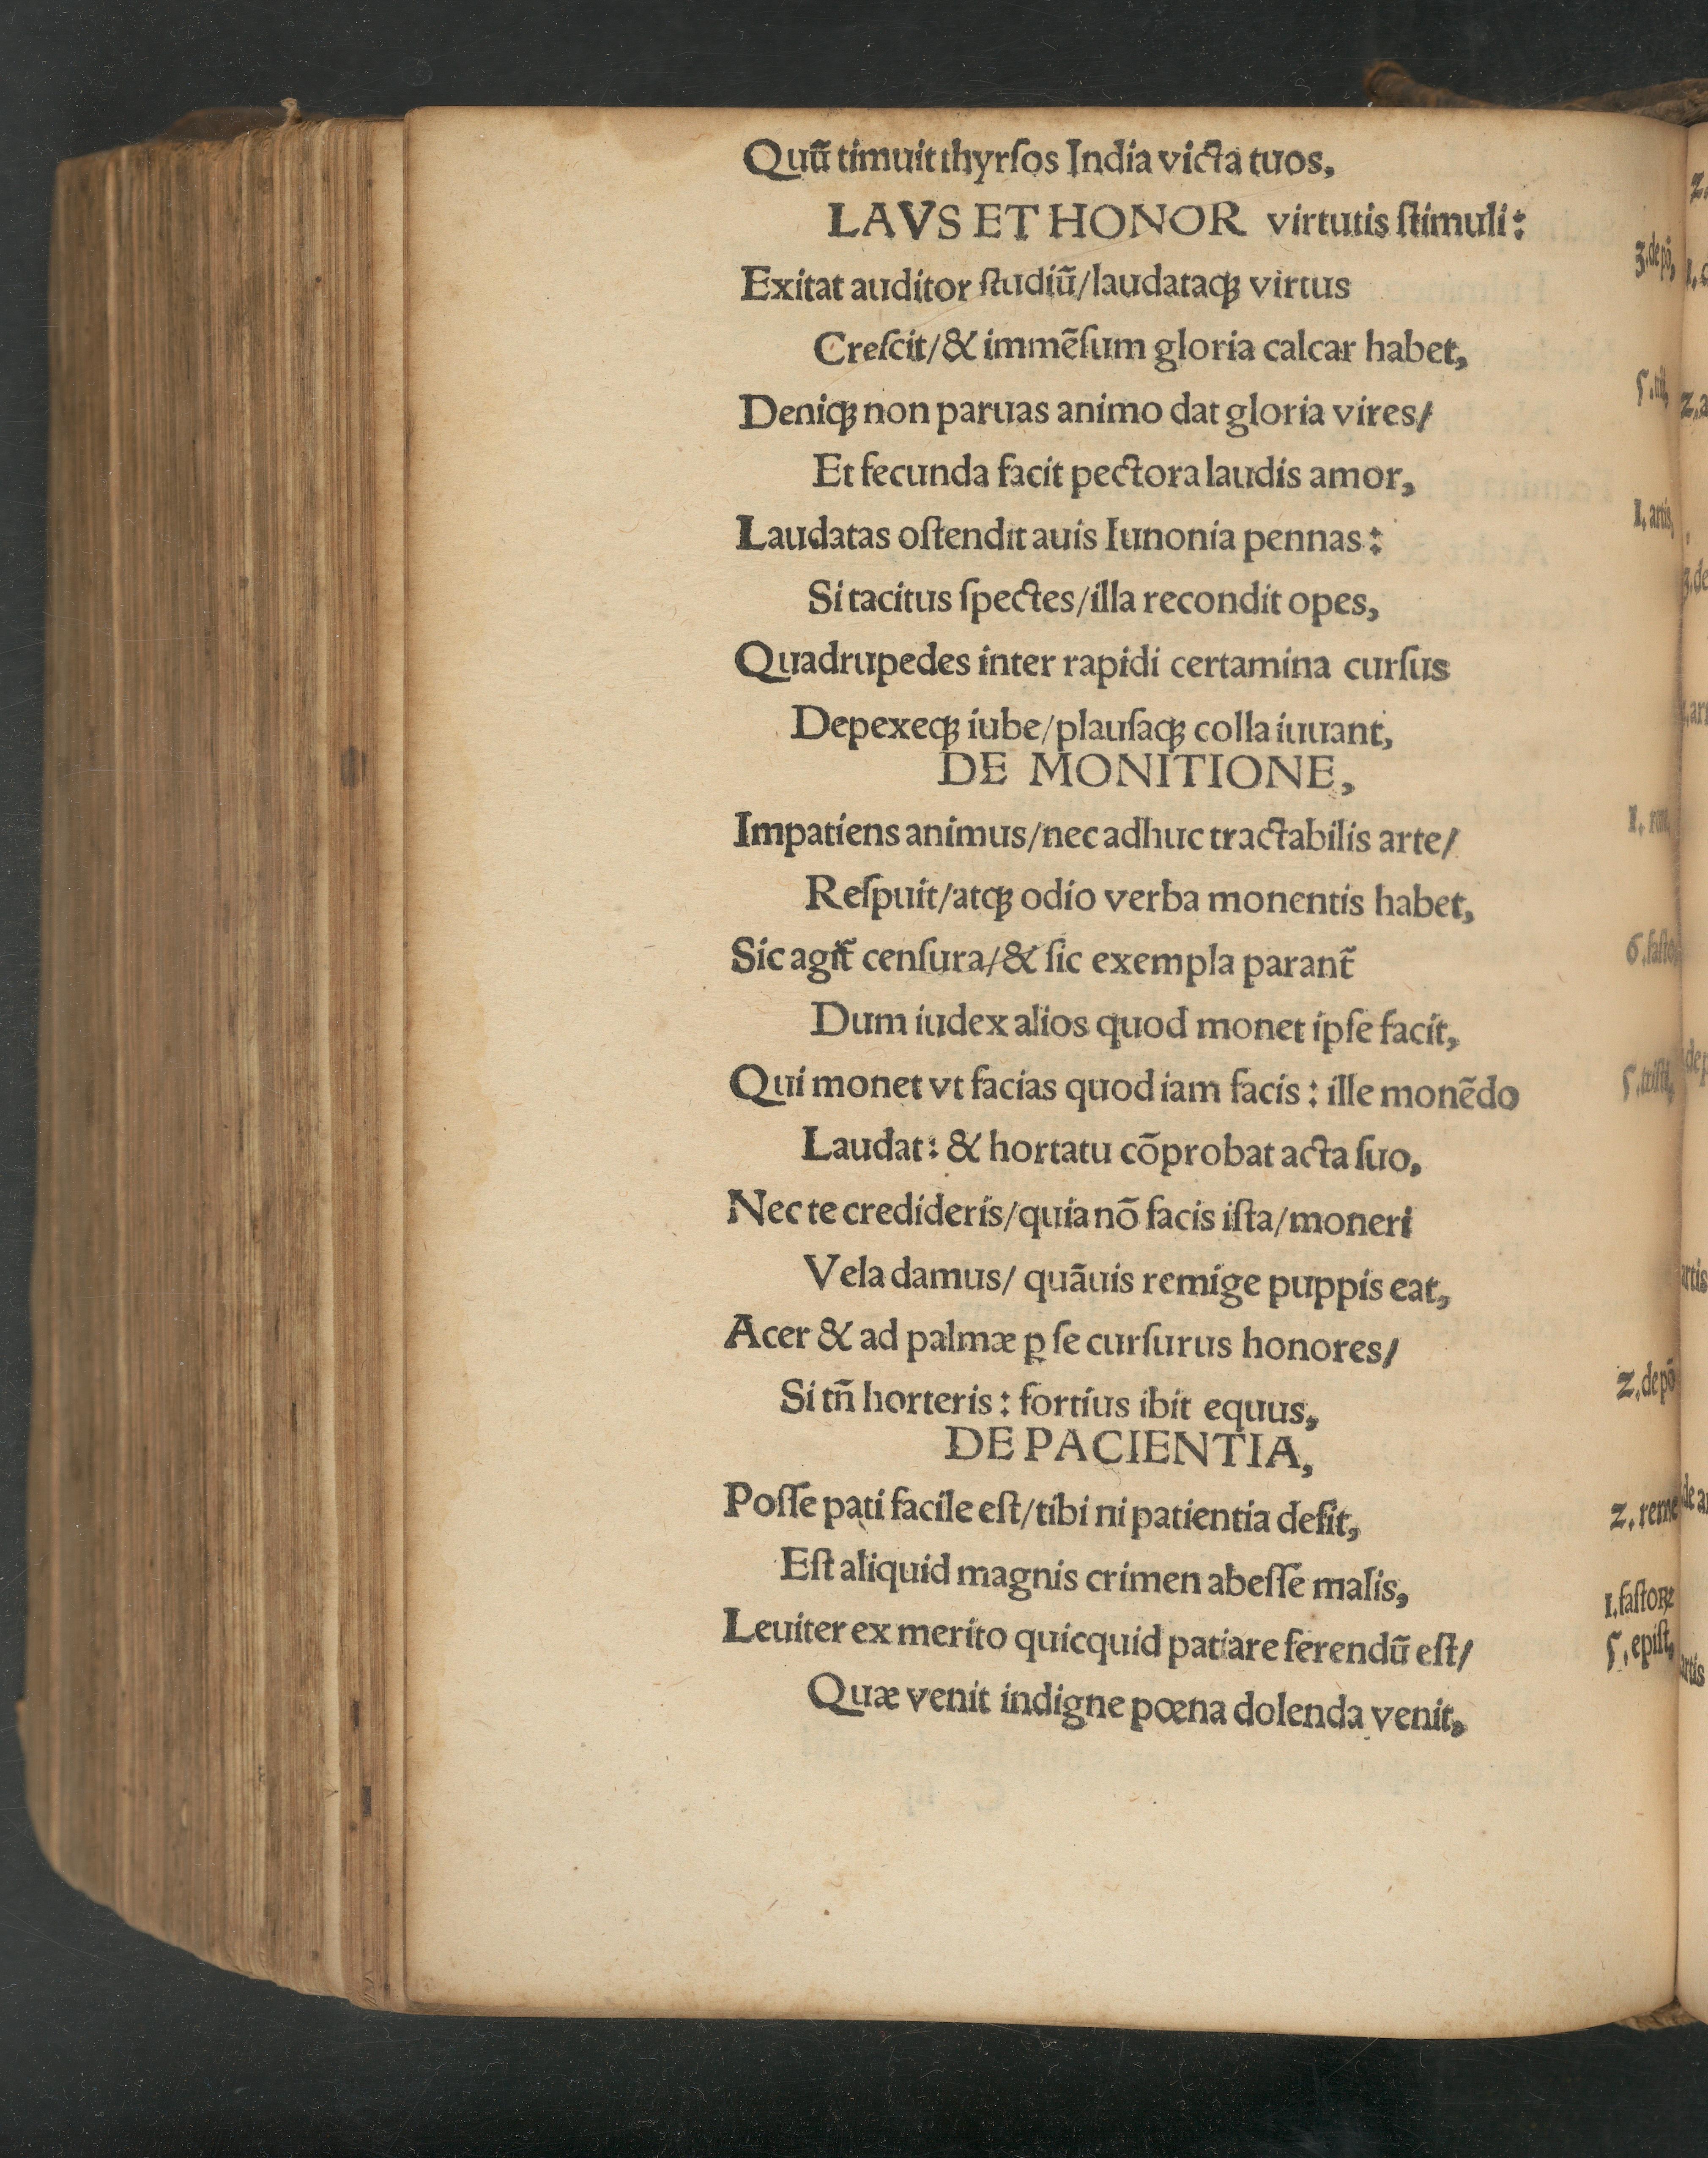 Quū timuit thyrſos India victa tuos,
LAVS ET HONOR virtutis ſtimuli:
3. de pō,
Exitat auditor ſtudiū/laudataqꝫ virtus
Creſcit/& immēſum gloria calcar habet,
Deniqꝫ non paruas animo dat gloria vires/
Et fecunda facit pectora laudis amor,
Laudatas oſtendit auis Iunonia pennas:
1. artis,
Si tacitus ſpectes/illa recondit opes,
Quadrupedes inter rapidi certamina curſus
Depexeqꝫ iube/plauſaqꝫ colla iuuant,
DE MONITIONE,
Impatiens animus/nec adhuc tractabilis arte/
Reſpuit/atqꝫ odio verba monentis habet,
Sic agit̄ cenſura/& ſic exempla parant̄
6. faſto
Dum iudex alios quod monet ipſe facit,
Qui monet vt facias quod iam facis: ille monēdo
5. triſti,
Laudat: & hortatu cōprobat acta ſuo,
Nec te credideris/quia nō facis iſta/moneri
Vela damus/ quāuis remige puppis eat,
Acer & ad palmæ ꝑ ſe curſurus honores/
2. de pō
Si tn̄ horteris: fortius ibit equus,
DE PACIENTIA,
Poſſe pati facile eſt/tibi ni patientia deſit,
2. reme
Eſt aliquid magnis crimen abeſſe malis,
1. faſtoꝝ
Leuiter ex merito quicquid patiare ferendū eſt/
5. epiſt,
Quæ venit indigne pœna dolenda venit,